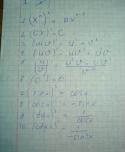 1. (xⁿ)' = nxⁿ⁻¹
2. (cx)' = c
3. (u±v)' = u' ± v'
4. (uv)' = u'v + uv'
5. (u/v)' = (u'v - uv')/v²
6. (c)' = 0
7. (sinx)' = cosx
8. (cosx)' = -sinx
9. (tgx)' = 1/cos²x
10. (ctgx)' = -1/sin²x